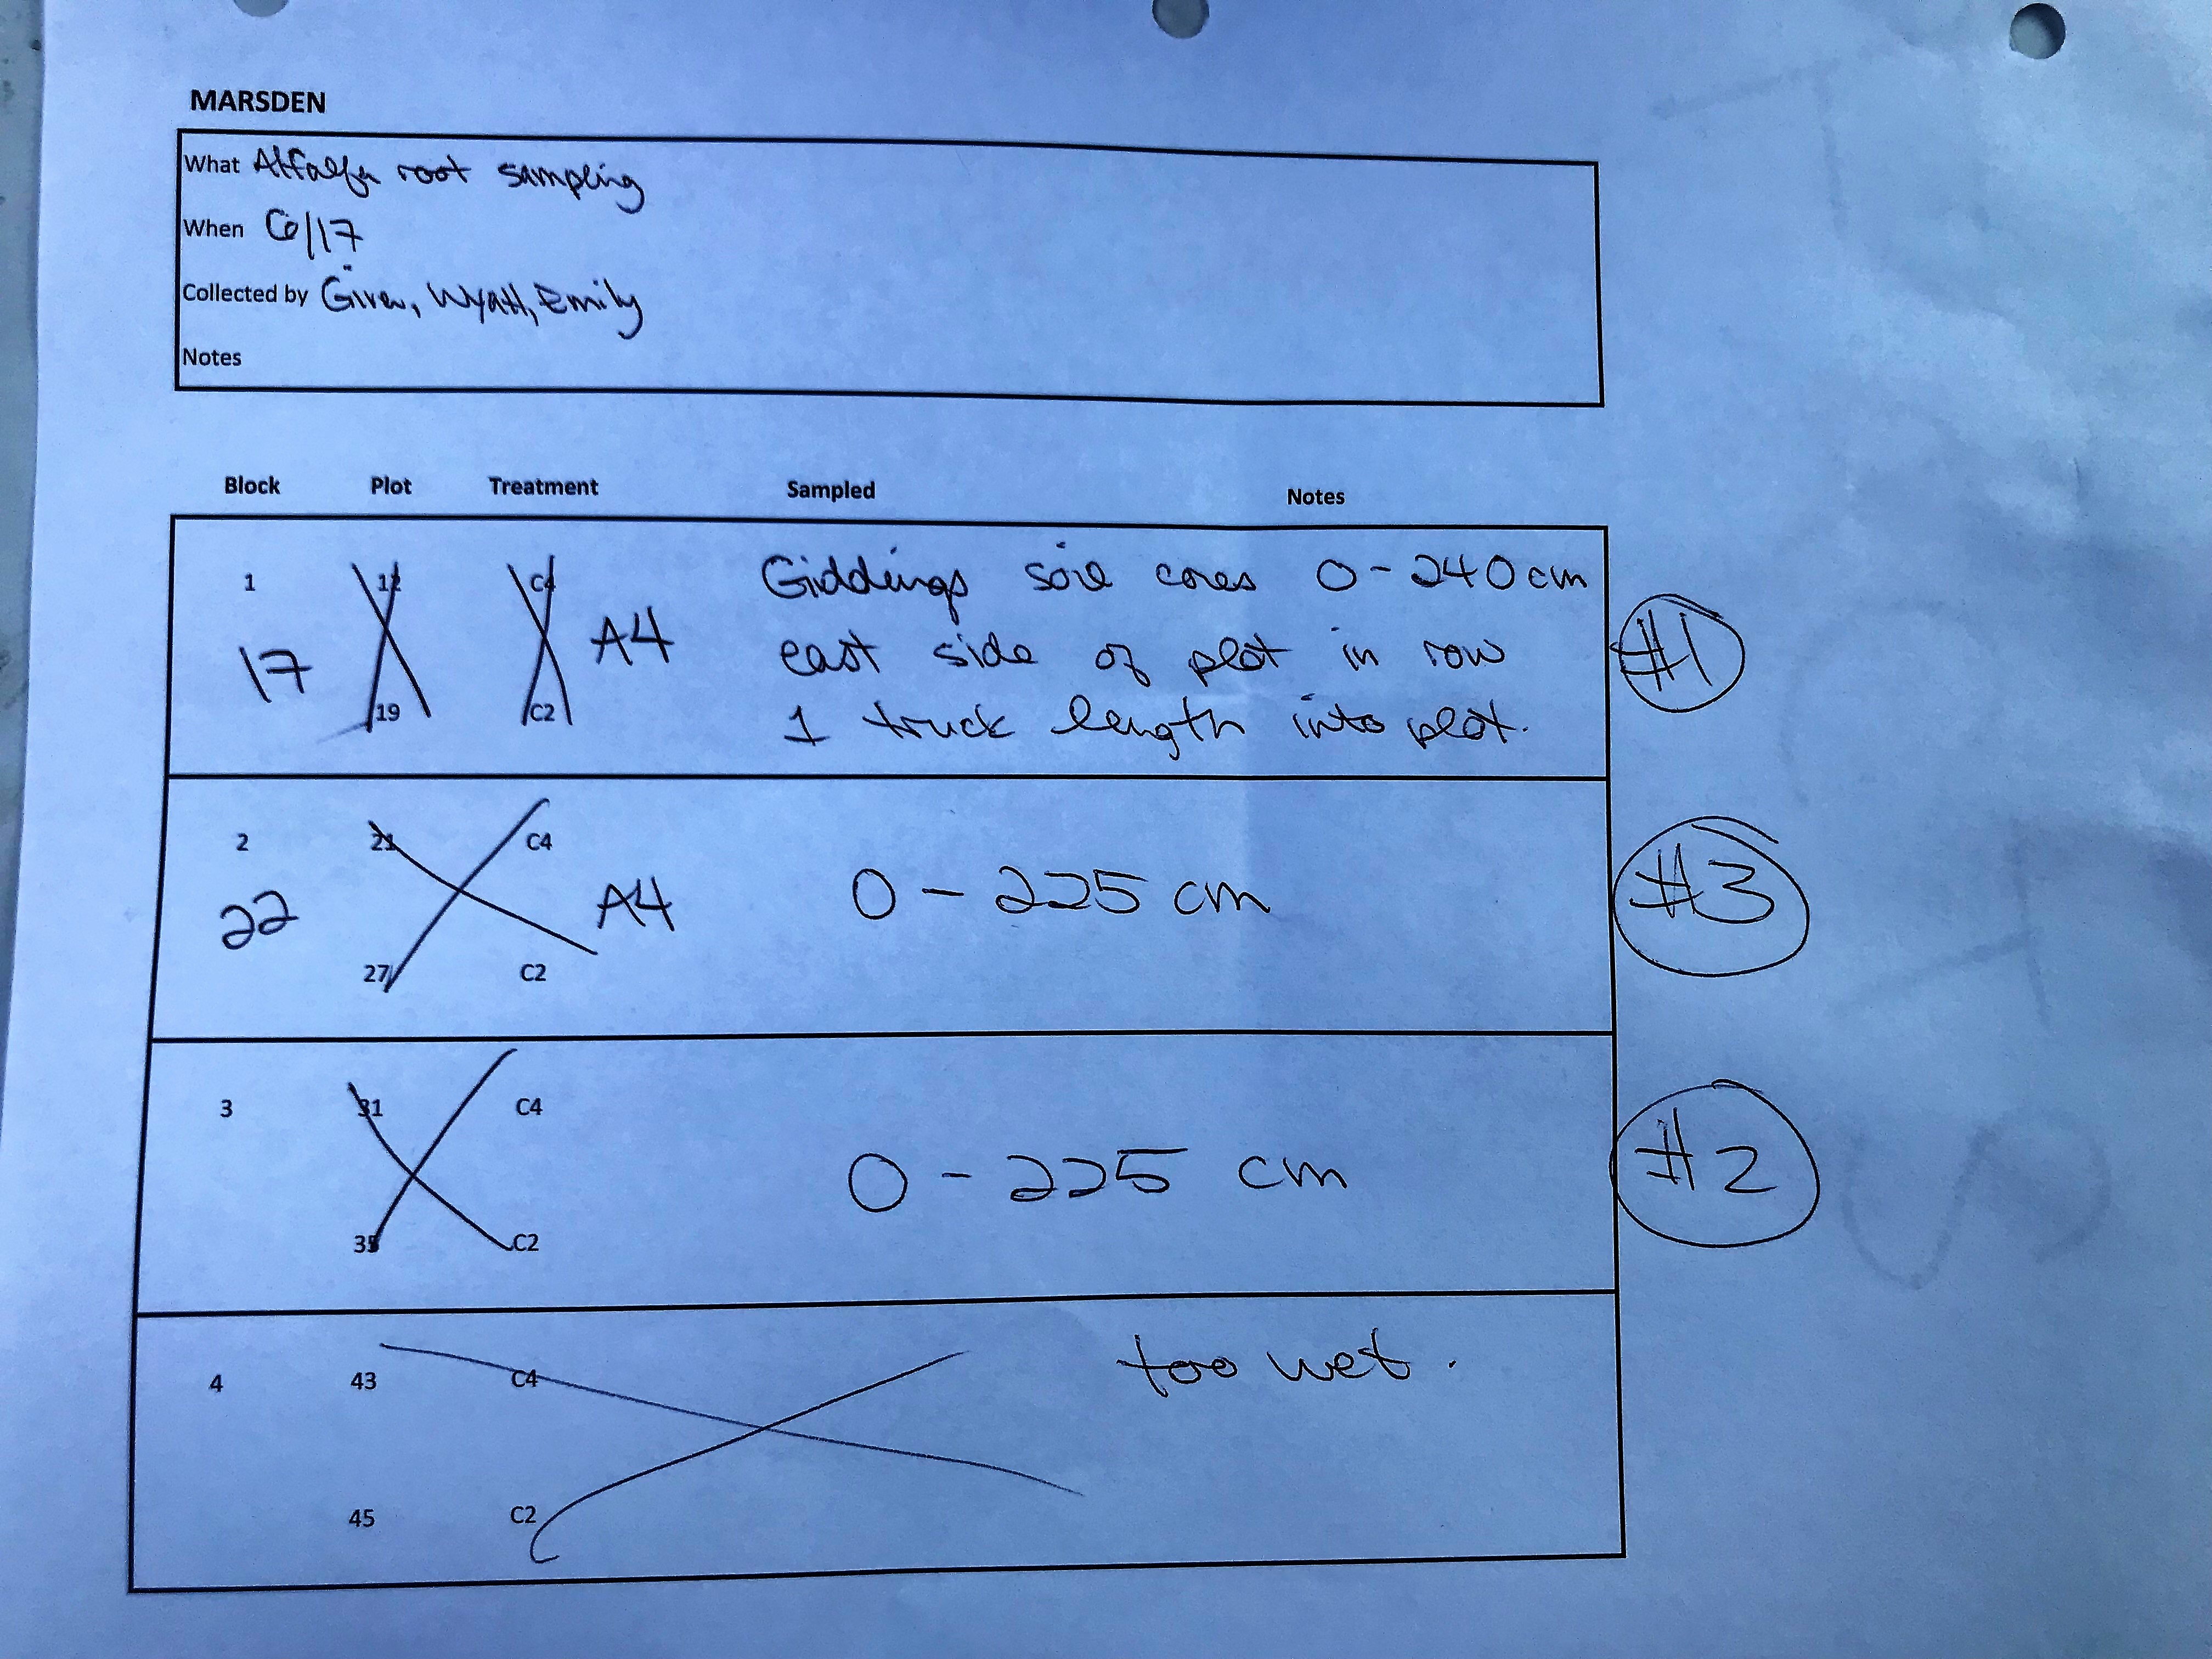 MARSDEN
What Alfalfa root sampling
When 6/17
Collected by Giren, Wyatt, Emily
Notes
Block Plot Treatment Sampled Notes
1 12 C4 Giddings soil cores 0-240cm
17 A4 east side of plot in row #1
19 C2 1 truck length into plot.
2 21 C4
22 A4 0-225 cm #3
27 C2
3 31 C4
0-225 cm #2
35 C2
4 43 C4 too wet.
45 C2